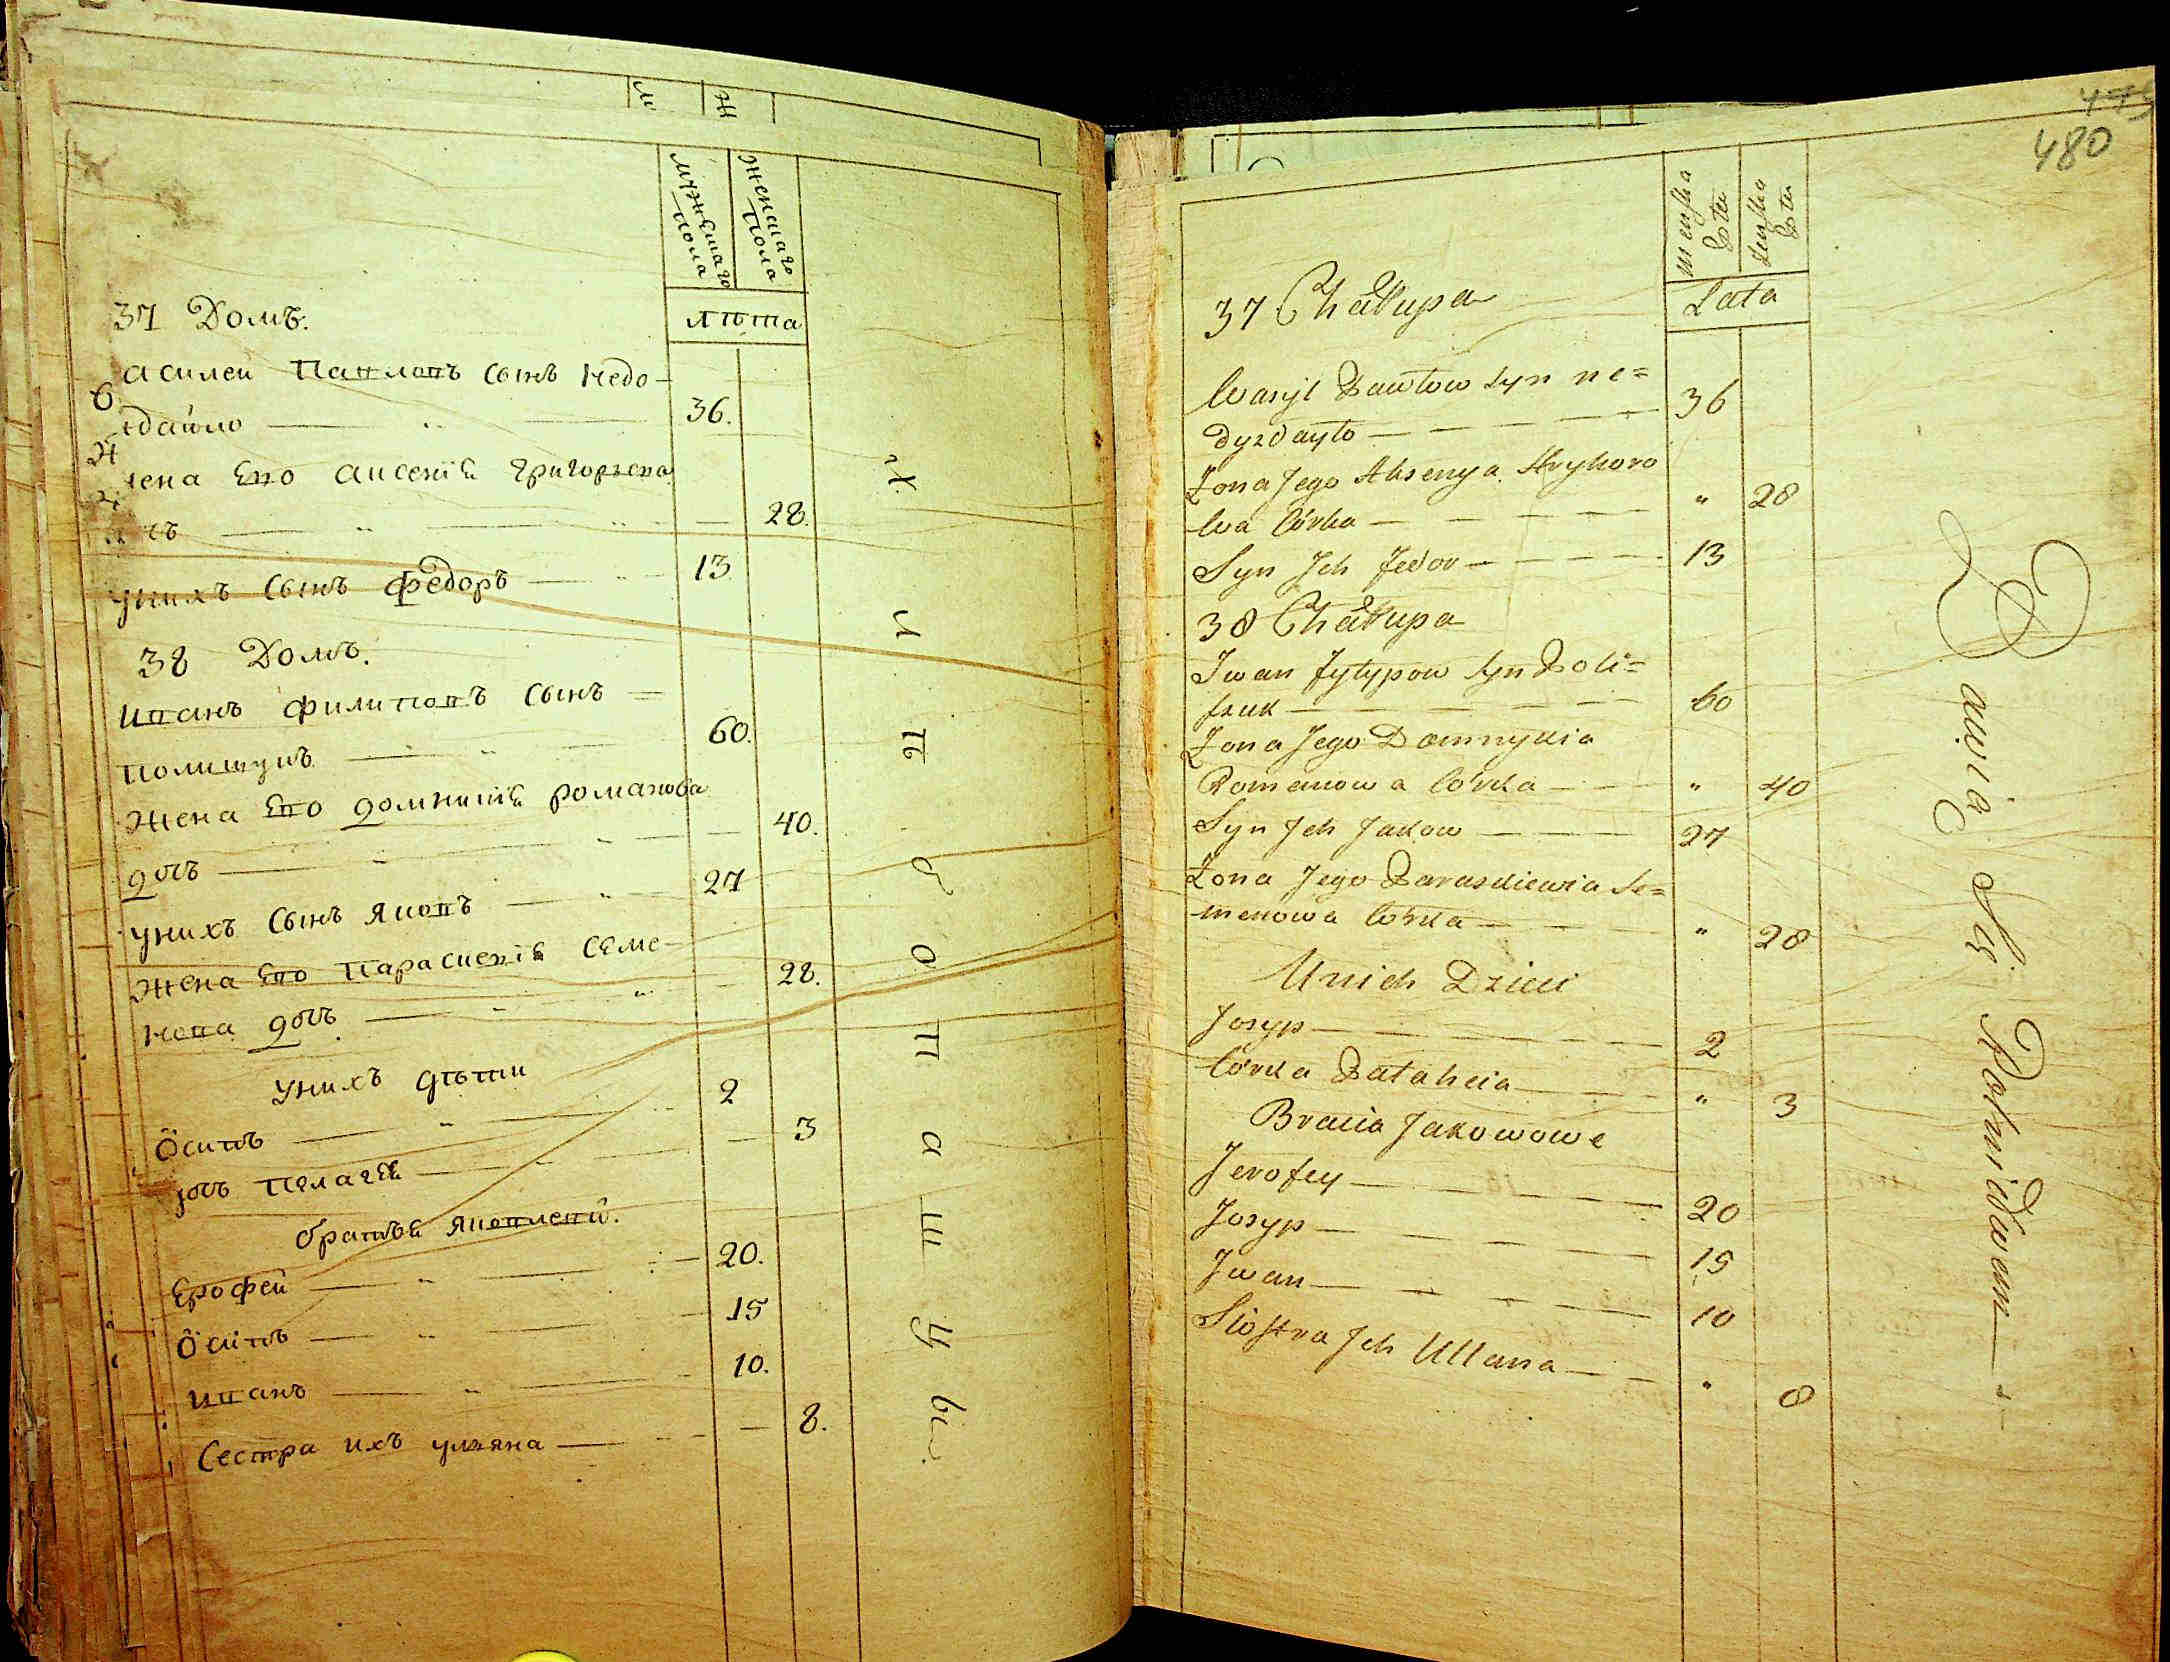 м
ж
мужескаго пола
женскаго пола
лѣта
37 Домъ.
Василей Павловъ сынъ Недо-
ждайло 36.
Жена его Аксенія Григорьева
28.
У нихъ сынъ Федоръ 13
38 Домъ.
Иванъ Филиповъ сынъ
Полищукъ 60.
Жена его Домникія Романова
дочь 40.
У нихъ сынъ Яковъ 27
Жена его Параскевія Семе-
нова дочь 28.
У нихъ дѣти
Осипъ 2
дочь Пелагея 3
братья Яковлевы.
Ерофей 20.
Осипъ 15
Иванъ 10.
Сестра ихъ Ульяна 8.
480
męska
żeńska
Lata
37 Chałupa
Wasyl Pawłow syn Ne=
dyzdayło 36
Żona Jego Aksenya Hryhoro
wa Córka " 28
Syn Ich Fedor 13
38 Chałupa
Iwan Fyłypow syn Poli=
szuk 60
Żona Jego Domnykia
Romanowa Córka " 40
Syn Ich Jakow 27
Żona Jego Paraskiewia Se=
menowa Córka " 28
U nich Dzieci
Josyp 2
Córka Pałaheia " 3
Bracia Jakowowe
Jerofey 20
Josyp 15
Iwan 10
Siostra Ich Ullana " 8